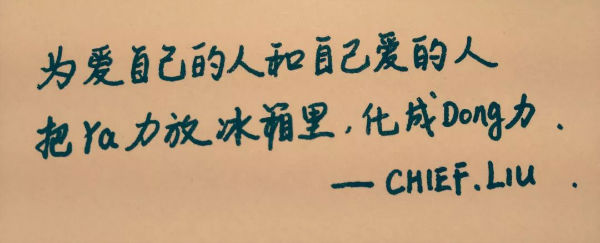 为爱自己的人和自己爱的人
把Ya力放冰箱里,化成Dong力.
— CHIEF.LIU .